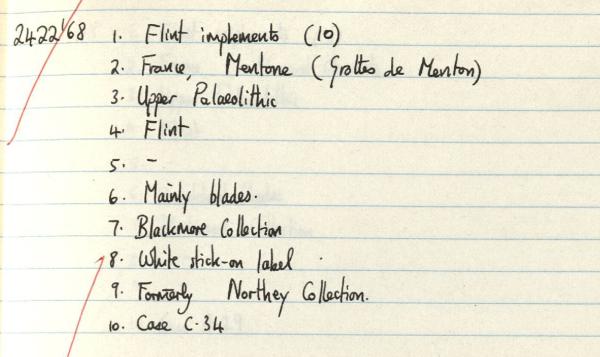 2422'68 1. Flint implements (10)
2. France, Mentone (Grottes de Menton)
3. Upper Palaeolithic
4. Flint
5. -
6. Mainly blades.
7. Blackmore Collection
8. White stick-on label
9. Formerly Northey Collection.
10. Case C.34